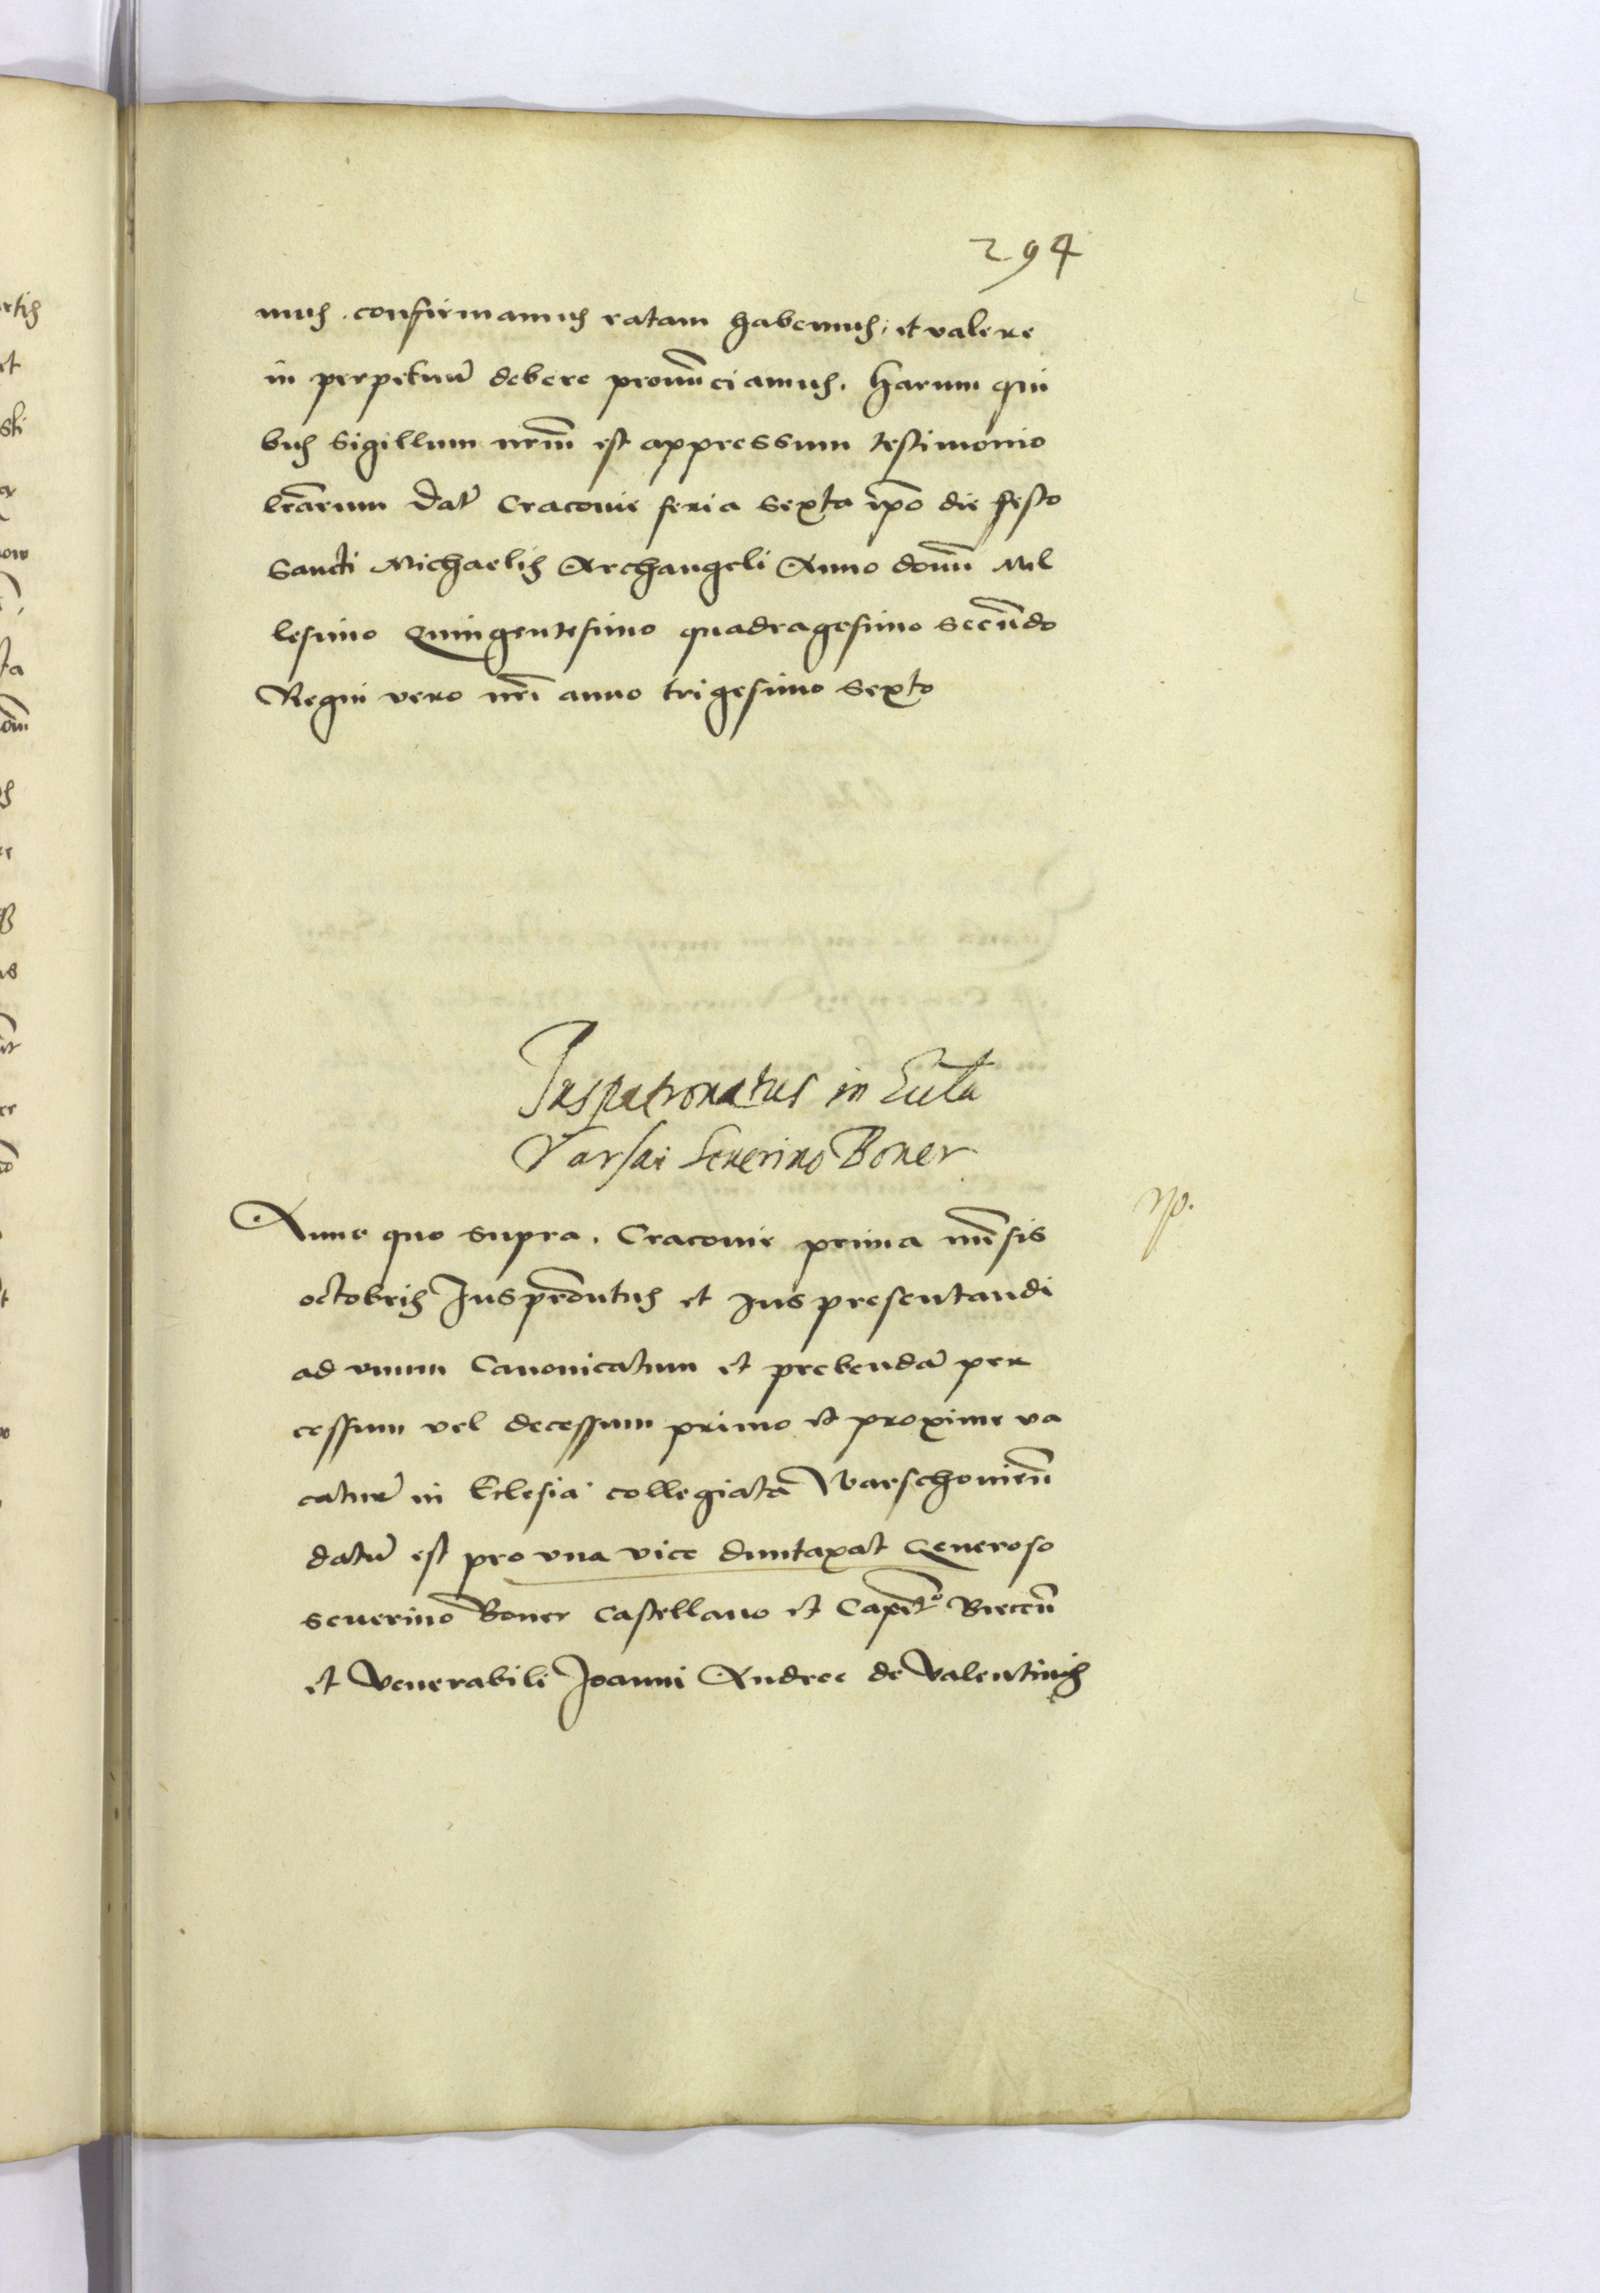 294
mus. confirmamus ratam habemus, et valere
in perpetuū debere pronūnciamus. Harum qui
bus Sigillum nrm̄ est appressum testimonio
lrārum Dat̄ Cracovie feria Sexta ip̄o die festo
Sancti Michaelis Archangeli Anno domı̄ Mil
lesimo Quingentesimo quadragesimo Secūndo
Regni vero nrı̄ anno trigesimo Sexto
Juspatronatus in Eccla
Varsai Severino Boner
Anno quo supra. Cracovie prima mēnsis
octobris et Jus presentandi
ad vnum Canonicatum et prebendā per
cessum vel decessum primo et proxime va
catur̄ in Eclesia collegiata Warschoviēn̄
datū est pro vna vice duntaxat Generoso
Severino Boner Castellano et Capit̄o Biecen̄
et Venerabili Joanni Andree de Valentinis